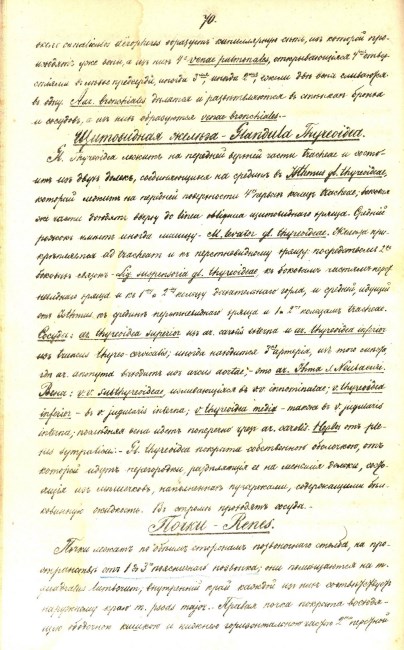 70.
около canaliculi образуют капиллярную сеть, из которой про-
исходят уже вены, а из них 4 venae pulmonales, открывающіяся 4мя отвер-
стіями въ лѣвое предсердіе, иногда 3мя, иногда 2мя, если двѣ вены сливаются
въ одну. Art. bronchiales дѣлятся и развѣтвляются въ стѣнкахъ бронхъ
и сосудовъ, а изъ нихъ образуются venae bronchiales.
Щитовидная железа - Glandula Thyreoidea.
Gl. Thyreoidea лежитъ на передней верхней части tracheae и состо-
итъ изъ двухъ долекъ, соединяющихся на срединѣ въ Isthmus gl. thyreoideae,
который лежитъ на передней поверхности колецъ tracheae, боковыя
же части доходятъ вверху до linea obliqua щитовиднаго хряща. Средній
имѣетъ иногда мышцу - M. levator gl. thyreoideae. Железа при-
крѣпляется къ tracheae и къ перстневидному хрящу посредствомъ 2хъ
боковыхъ связокъ - Lig. suspensoria gl. thyreoideae, къ боковымъ частямъ перст-
невиднаго хряща и къ 1му и 2му кольцу дыхательнаго горла, и средней, идущей
отъ isthmus къ срединѣ перстневиднаго хряща и 1 - 2му кольцамъ tracheae.
Сосуды: ar. thyreoidea superior изъ ar. carotis externa и ar. thyreoidea inferior
изъ truncus thyreo-cervicalis; иногда находится 5ая артерія, изъ того мѣста,
гдѣ ar. anonyma выходитъ изъ arcus aortae; - это ar. Ima s. Neubaueri.
Вены: v.v. subthyreoideae, изливающіяся въ v.v. innominatae; v. thyreoidea
inferior - въ v. jugularis interna; v. thyreoidea media - также въ v. jugularis
interna; последняя вена идетъ поперечно чрезъ ar. carotis. Нервы отъ ple-
xus. - Gl. thyreoidea покрыта собственною оболочкою, отъ
которой идутъ перегородки раздѣляющія ее на мелкія дольки, состо-
ящія изъ мѣшочковъ, наполненныхъ пузырьками, содержащими бѣл-
ковинную жидкость. Въ строма проходятъ сосуды.
Почки - Renes.
Почки лежатъ по обѣимъ сторонамъ позвоночнаго столба, на про-
странствѣ отъ 1 до 3го поясничнаго позвонка; они помѣщаются на m.
quadratus lumborum, внутренній край каждой изъ нихъ соотвѣтствуетъ
наружному краю m. psoas major. Правая почка покрыта восходя-
щею ободочною кишкою и нижнею горизонтальною частью 2ой